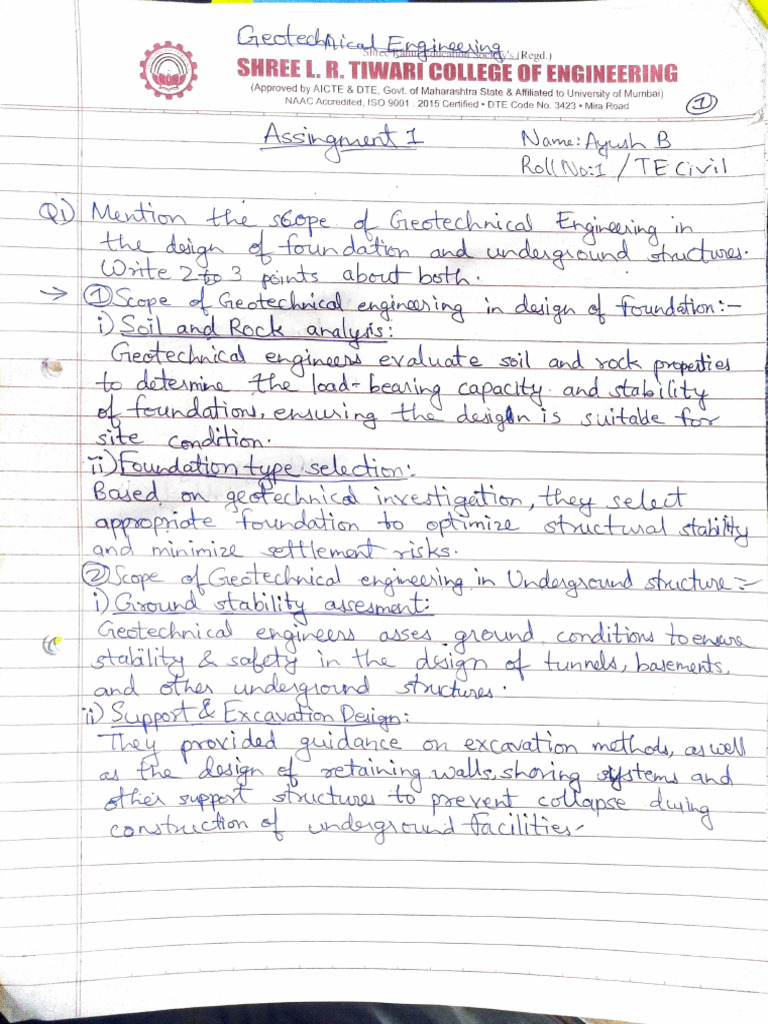 Geotechnical Engineering
Education Society's (Regd.)
SHREE L. R. TIWARI COLLEGE OF ENGINEERING
(Approved by AICTE & DTE, Govt. of Maharashtra State & Affiliated to University of Mumbai)
NAAC Accredited, ISO 9001 : 2015 Certified • DTE Code No. 3423 • Mira Road
①
Assingment 1
Name: Ayush B
Roll No:1 / TE Civil
Q1) Mention the scope of Geotechnical Engineering in
the design of foundation and underground structures.
Write 2 to 3 points about both.
→ ① Scope of Geotechnical engineering in design of foundation:-
i) Soil and Rock analysis:
Geotechnical engineers evaluate soil and rock properties
to determine the load-bearing capacity and stability
of foundations, ensuring the design is suitable for
site condition.
ii) Foundation type selection:
Based on geotechnical investigation, they select
appropriate foundation to optimize structural stability
and minimize settlement risks.
② Scope of Geotechnical engineering in Underground structure:-
i) Ground stability assesment:
Geotechnical engineers asses ground conditions to ensure
stability & safety in the design of tunnels, basements,
and other underground structures.
ii) Support & Excavation Design:
They provided guidance on excavation methods, as well
as the design of retaining walls, shoring systems and
other support structures to prevent collapse during
construction of underground facilities-